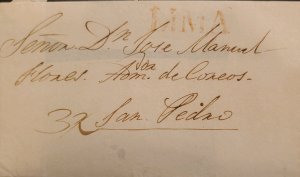 LIMA
Señor Dn Jose Manuel
Flores. Admor de Correos.
32 San Pedro